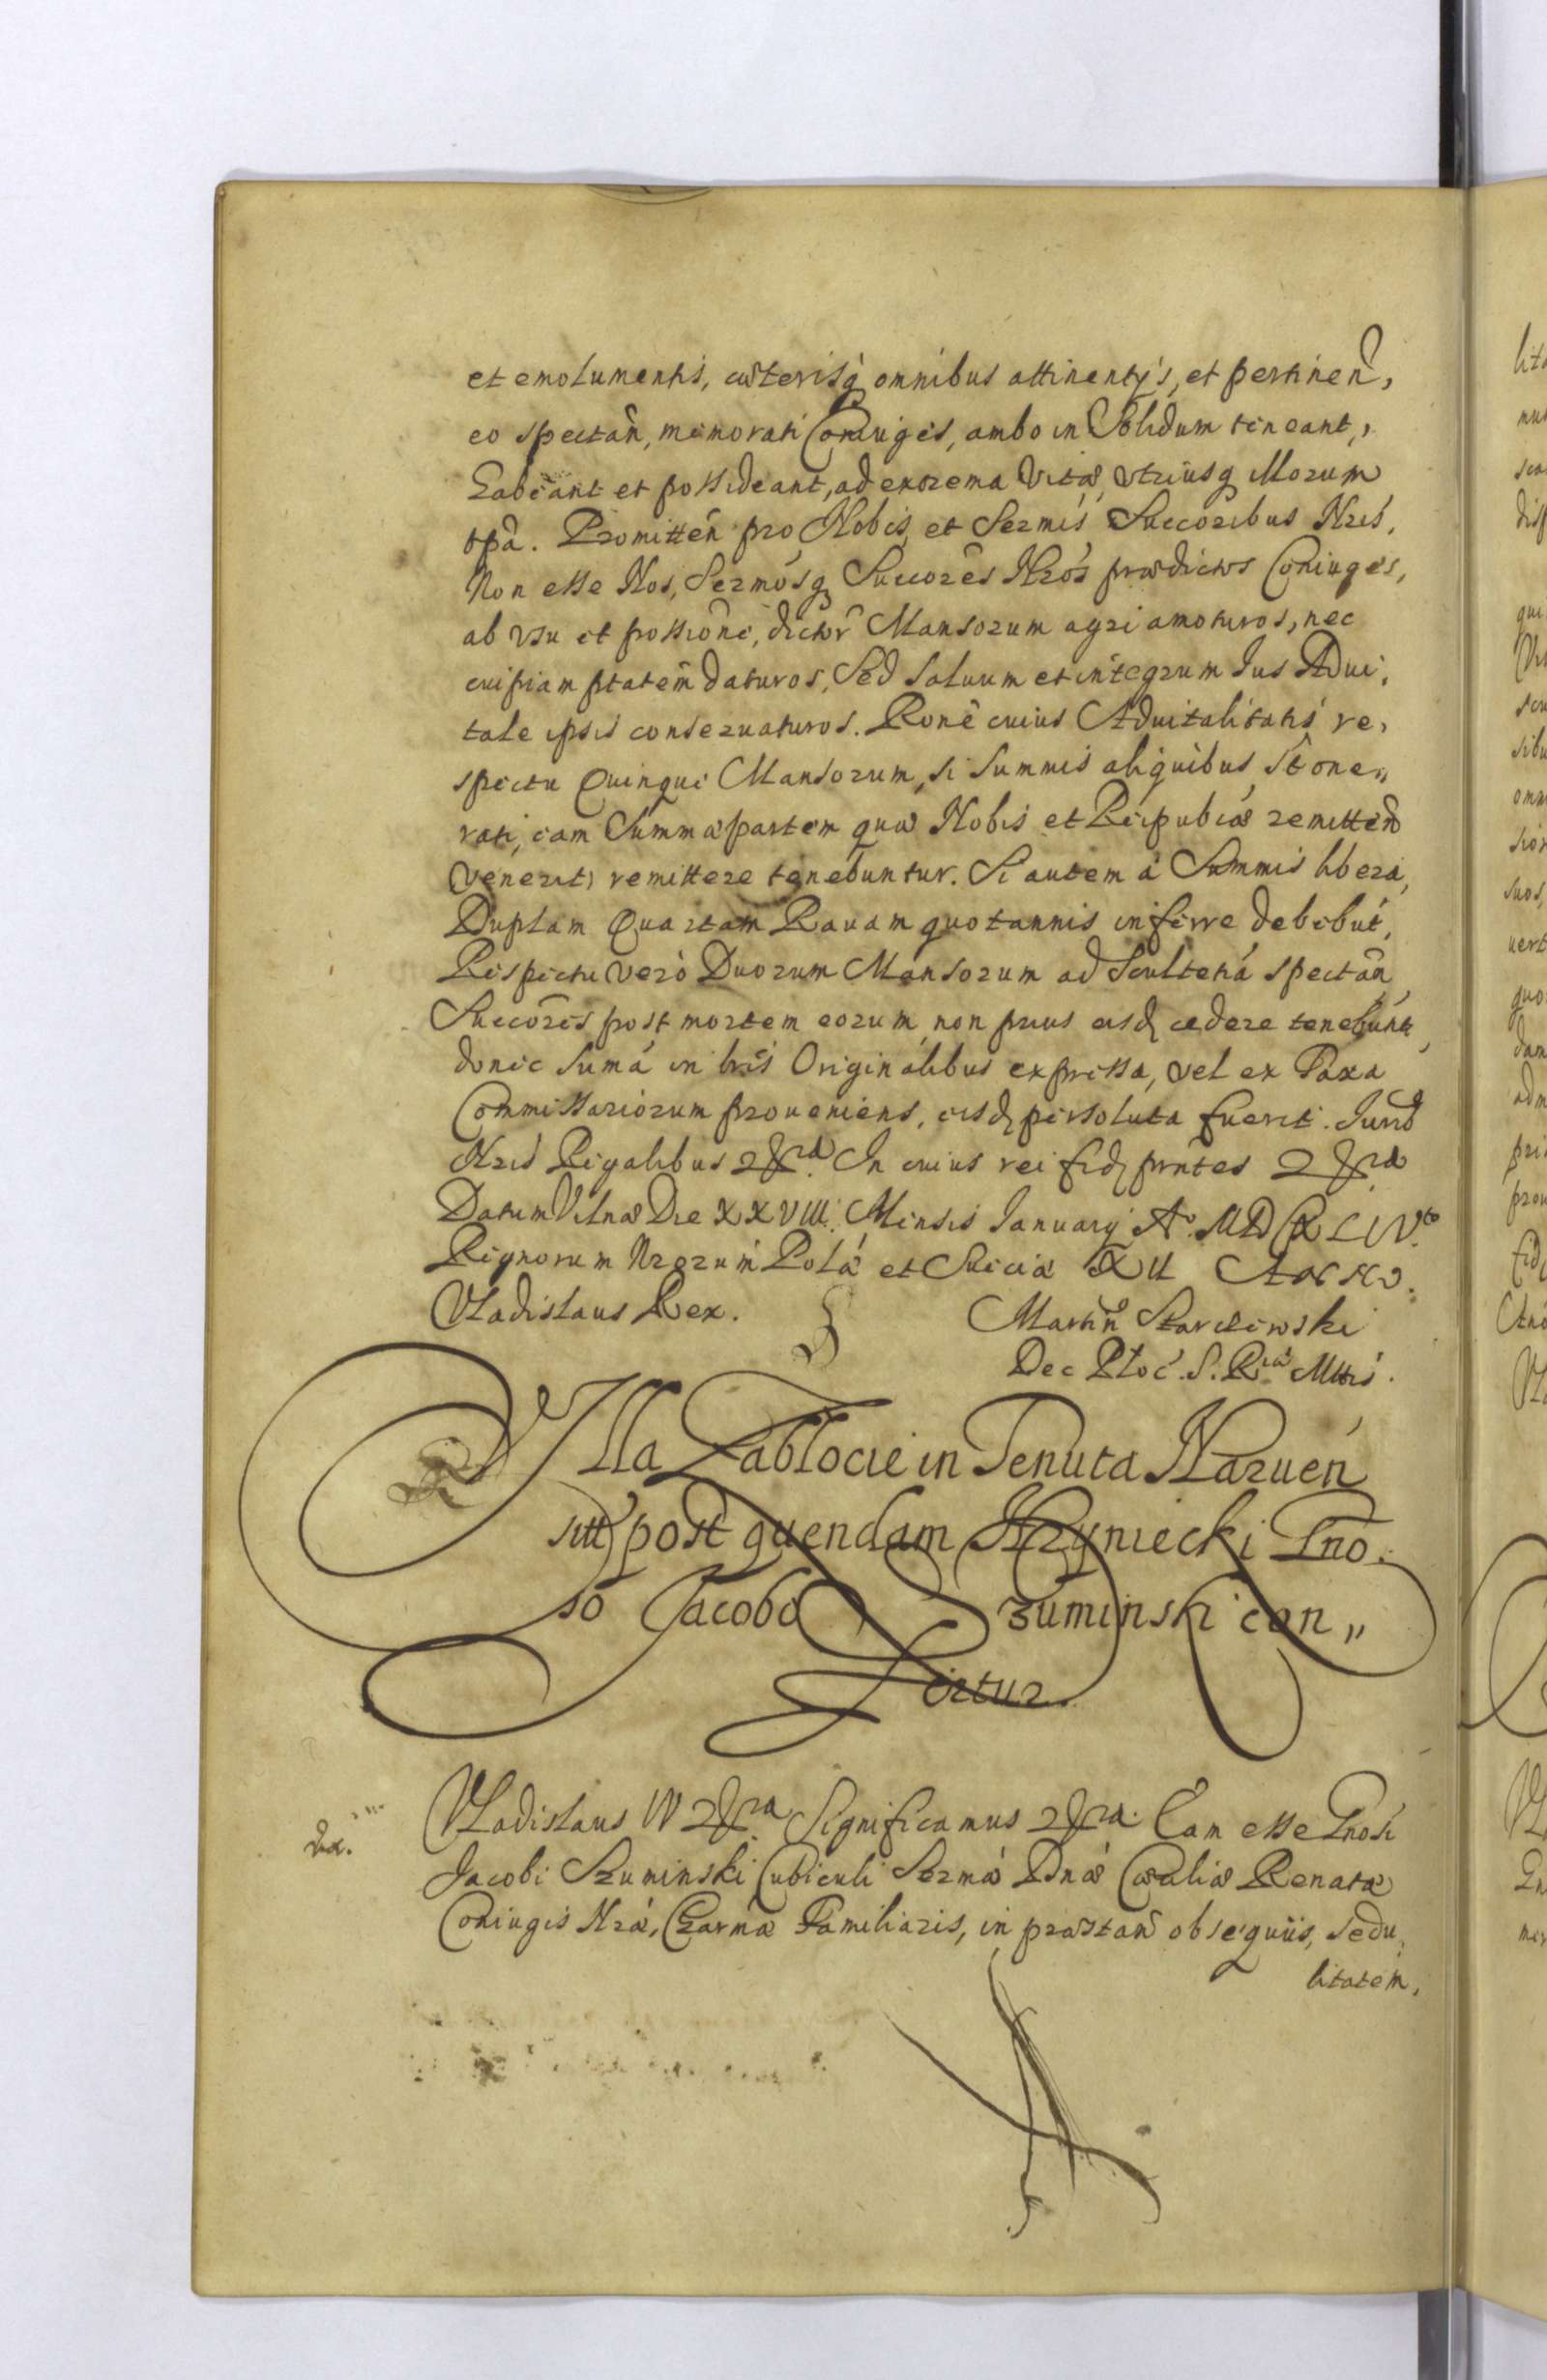 et emolumentis, cæterisq omnibus attinentÿs, et pertinen,
eo spectan, memorati Coniuges, ambo in Solidum teneant,,
habeant et possideant, ad extrema Vitæ, vtriusq Illorum
tpa. Promitten pro Nobis, et Sermis Succoribus Nris,
Non esse Nos, Sermosq Succores Nros prædictos Coniuges,
ab vsu et possione, dictor Mansorum agri amoturos, nec
cuipiam ptatem daturos, Sed Saluum et integrum Ius Adui,
tale ipsis conseruaturos. Rone cuius Aduitalitatis re,
spectu Quinque Mansorum, si Summis aliquibus st one,,
rati, eam Summæ partem quæ Nobis et Reipublæ remitten
venerit, remittere tenebuntur. Si autem à Summis libera,
Duplam Quartam Rauam quotannis inferre debebut,
Respectu verò Duorum Mansorum ad Scultetia spectan
Succores post mortem eorum, non prius eisd cedere tenebunt,
donec Suma in lris Originalibus expressa, vel ex Taxa
Commissariorum proueniens, eisd persoluta fuerit. Iurib
Nris Regalibus &ra In cuius rei fid pntes &ra
Datum Vilnæ Die XXVIII. Mensis Ianuarÿ Ao. MDCXLIV.to
Regnorum Nrorum Pola et Sueciæ XII Anno.
Vladislaus Rex.
Martin Starczewski
Dec Ploc. S. Ria Mttis.
VIlla Zablocie in Tenuta Naruen
sitt post quendam Hryniecki Gno,
so Jacobo Szuminski con,,
fertur.
Vladislaus IV &ra Significamus &ra. Eam esse Gnosi
dux.
Jacobi Szuminski Cubiculi Serma Dnæ Cæciliæ Renatæ
Coniugis Nra, Charma Familiaris, in præstan obsequiis, sedu,
litatem,